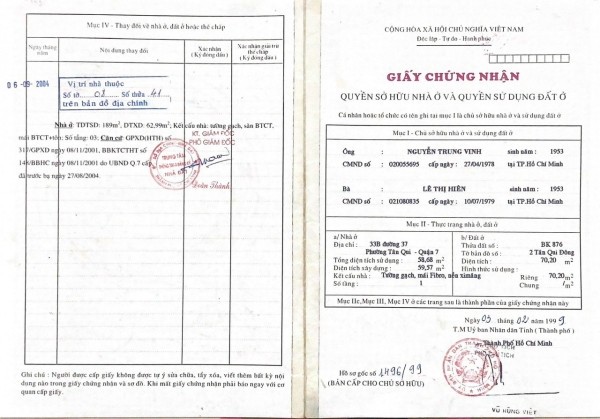 Mục IV - Thay đổi về nhà ở, đất ở hoặc thế chấp
Ngày tháng năm
Nội dung thay đổi
Xác nhận (Ký đóng dấu)
Xác nhận giải trừ thế chấp (Ký đóng dấu)
06-09-2004
Vị trí nhà thuộc
Số tờ 03 Số thửa 41
trên bản đồ địa chính
Nhà ở : TDTSD: 189m², DTXD: 62,99m², Kết cấu nhà: tường gạch, sàn BTCT,
mái BTCT+tôn; Số tầng: 03; Căn cứ: GPXD(HTH) số
317/GPXD ngày 08/11/2001, BBKTCTHT số
148/BBHC ngày 08/11/2001 do UBND Q.7 cấp
đã trước bạ ngày 27/08/2004.
KT. GIÁM ĐỐC
PHÓ GIÁM ĐỐC
TRUNG TÂM
Ghi chú : Người được cấp giấy không được tự ý sửa chữa, tẩy xóa, viết thêm bất kỳ nội
dung nào trong giấy chứng nhận và sơ đồ. Khi mất giấy chứng nhận phải báo ngay với cơ
quan cấp giấy.
CỘNG HÒA XÃ HỘI CHỦ NGHĨA VIỆT NAM
Độc lập - Tự do - Hạnh phúc
GIẤY CHỨNG NHẬN
QUYỀN SỞ HỮU NHÀ Ở VÀ QUYỀN SỬ DỤNG ĐẤT Ở
Cá nhân hoặc tổ chức có tên ghi tại mục I là chủ sở hữu nhà ở và sử dụng đất ở
Mục I - Chủ sở hữu nhà ở và sử dụng đất ở
Ông NGUYỄN TRUNG VINH sinh năm : 1953
CMND số : 020055695 cấp ngày : 27/04/1978 tại TP.Hồ Chí Minh
Bà LÊ THỊ HIỀN sinh năm : 1953
CMND số : 021080835 cấp ngày : 10/07/1979 tại TP.Hồ Chí Minh
Mục II - Thực trạng nhà ở, đất ở
a/ Nhà ở
Địa chỉ : 33B đường 37
Phường Tân Qui - Quận 7
Tổng diện tích sử dụng : 58,68 m²
Diện tích xây dựng : 59,57 m²
Kết cấu nhà : Tường gạch, mái Fibro, nền ximăng
Số tầng : 1
b/ Đất ở
Thửa đất số : BK 876
Tờ bản đồ số : 2 Tân Qui Đông
Diện tích : 70,20 m²
Hình thức sử dụng :
Riêng 70,20 m²
Chung / m²
Mục IIc, Mục III, Mục IV ở các trang sau là thành phần của giấy chứng nhận này
Ngày 03 tháng 02 năm 1999
T.M Uỷ ban Nhân dân Tỉnh ( Thành phố )
Thành Phố Hồ Chí Minh
Hồ sơ gốc số 1496/99
(BẢN CẤP CHO CHỦ SỞ HỮU)
VŨ HÙNG VIỆT